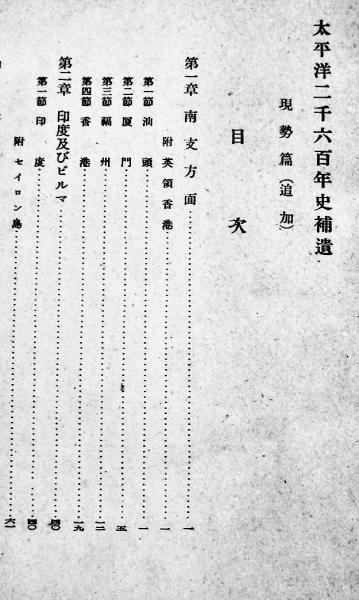 太平洋二千六百年史補遺
現勢篇(追加)
目次
第一章 南支方面……一
附 英領香港……一
第一節 汕頭……一
第二節 厦門……五
第三節 福州……一二
第四節 香港……一九
第二章 印度及びビルマ……四〇
第一節 印度……四〇
附 セイロン島……六一